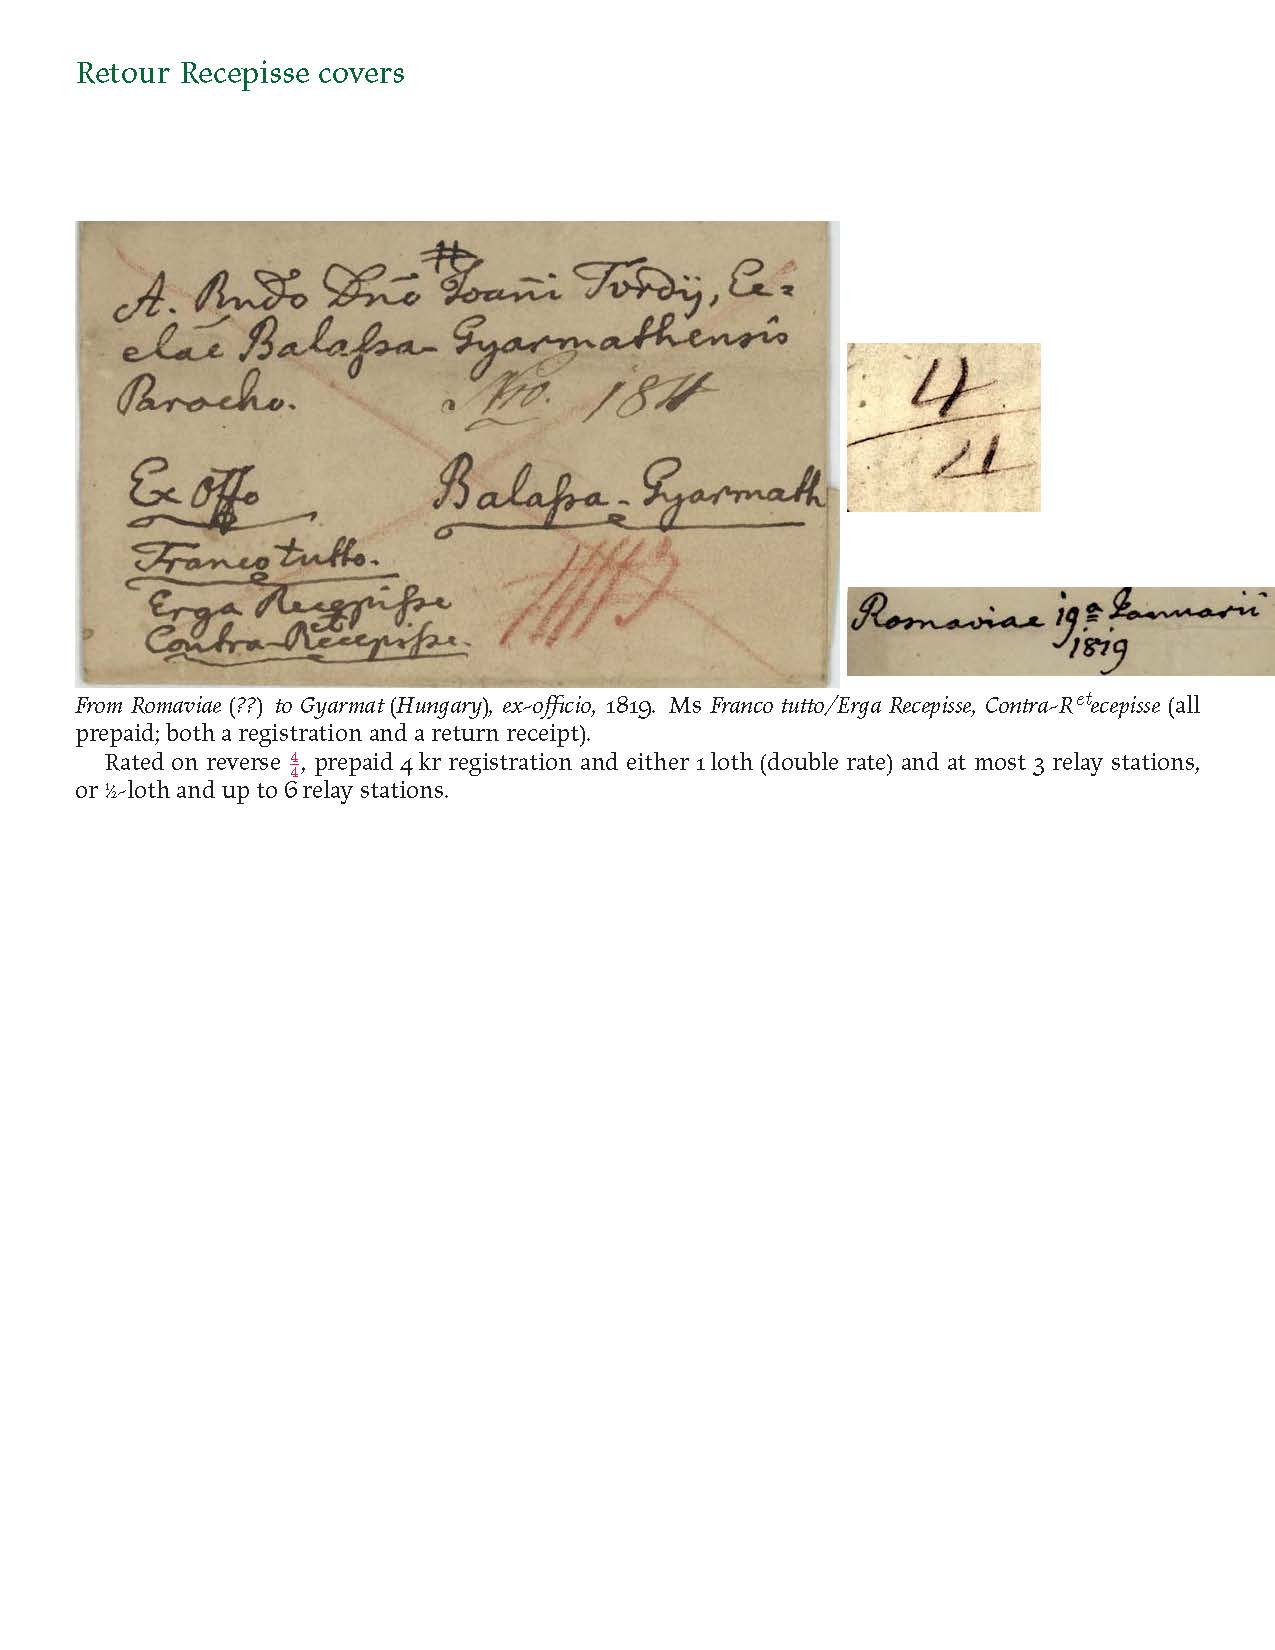 Retour Recepisse covers
A. Rndo Dno Joani Turdÿ, Ec=
clae Balaſsa- Gyarmathensis
Parocho.
Nro. 184
Ex Offo
Balaſsa - Gyarmath
Franco tutto.
Erga Recepiſse
et
Contra-Recepiſse.
4
4
Romaviae 19a Januarii
1819
From Romaviae (??) to Gyarmat (Hungary), ex-officio, 1819. Ms Franco tutto/Erga Recepisse, Contra-Retecepisse (all
prepaid; both a registration and a return receipt).
Rated on reverse 4/4, prepaid 4 kr registration and either 1 loth (double rate) and at most 3 relay stations,
or ½-loth and up to 6 relay stations.